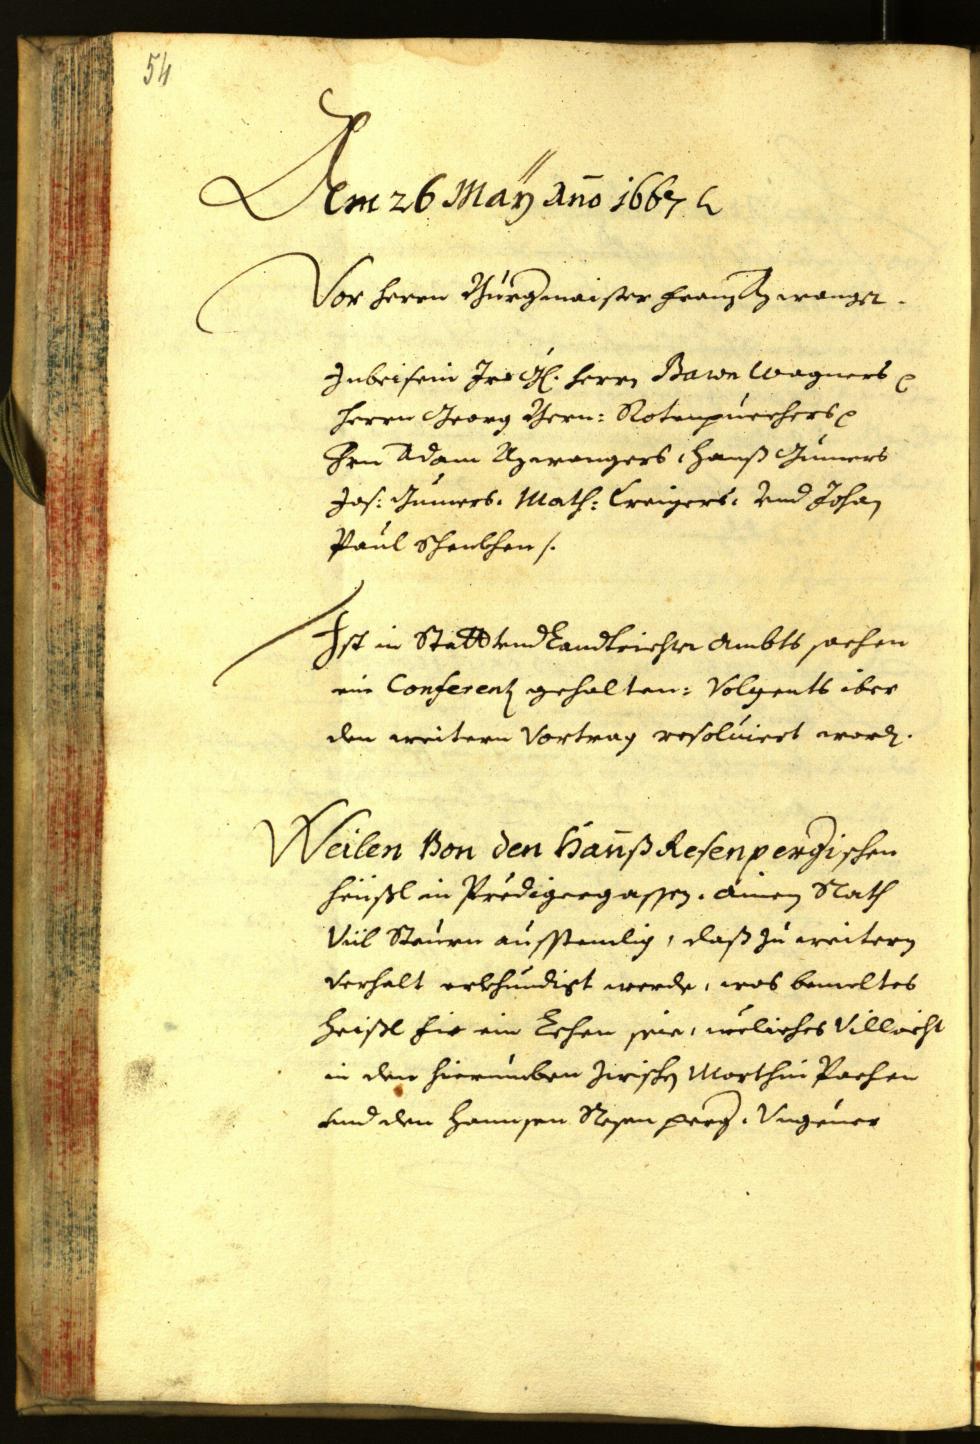 54
Dem 26 Maÿ Anno 1667
Vor herrn Bürgmaister Franz Azwanger.
Inbeisein Ire Gl. herrn Barn Wagners
herrn Georg Bern: Rotenpuechers
Hrn Adam Azwangers, Hanß Gumers
Jos: Gumers. Math: Creizers. Und Johan
Paul Schenkhen /.
Ist in Statt und Landtrichter Ambts sachen
ein Conferenz gehalten: Volgents über
den weitern Vortrag resoluiert word.
Weilen Von den Hannß Resenpergischen
heüßl in Predigergassen. Ainem Rath
Vil Steurn ausstendig, daß zu weitern
verhalt erkhundigt werde, was bemeltes
heüßl für ein Lehen seie, weliches Villeicht
in den hieruneben zwischen Marthin Pachen
und den Hannsen Resenperg. Ungeuer